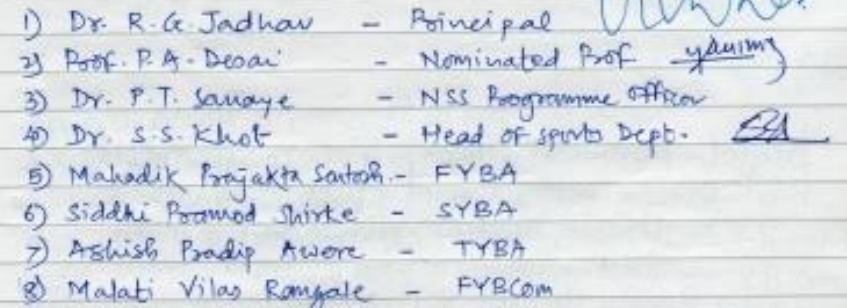 1) Dr. R. G. Jadhav - Principal
2) Prof. P. A. Desai - Nominated Prof
3) Dr. P. T. Sanaye - NSS Programme Officer
4) Dr. S. S. Khot - Head of sports Dept.
5) Mahadik Prajakta Santosh - FYBA
6) Siddhi Pramod Shirke - SYBA
7) Ashish Pradip Awere - TYBA
8) Malati Vilas - FYBCom